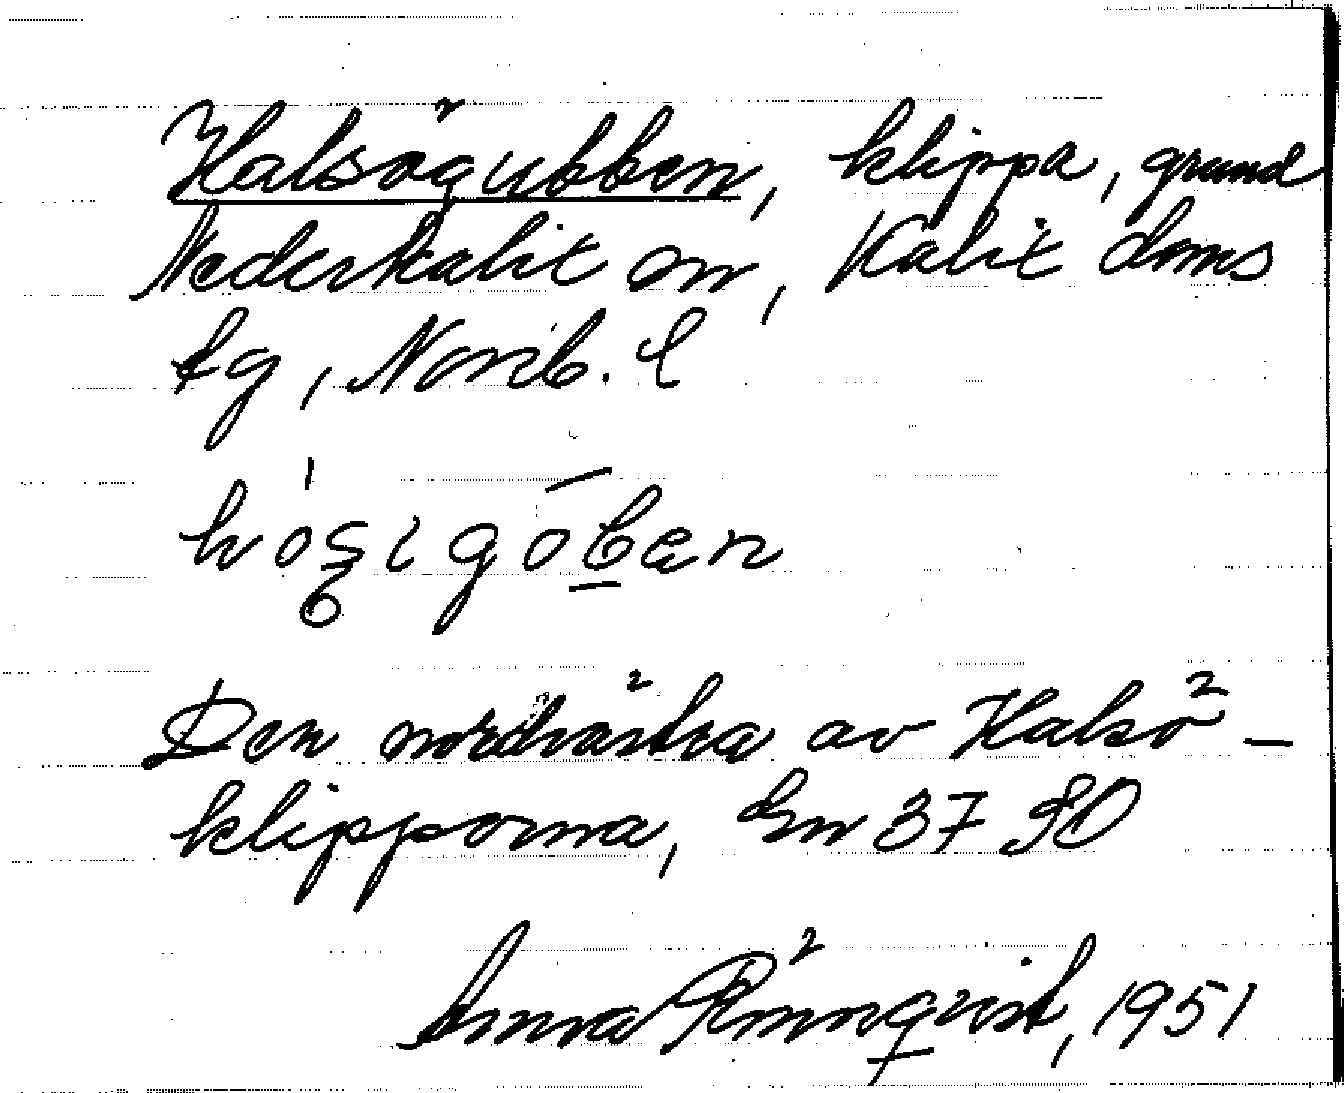 Halsögubben, klippa, grund
Nederkalix sn, Kalix doms
tg, Norrb. l
Den nordvästra av Halsö-
klipporna, En 37 SO
Anna Rönnqvist, 1951